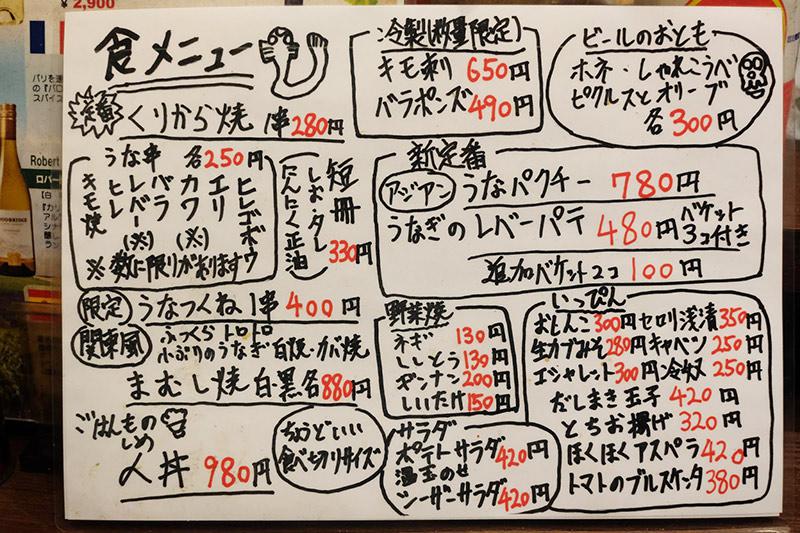 ¥2,900
食メニュー
定番
くりから焼 1串280円
うな串 各250円
キモ焼
ヒレ
レバー(※)
バラ
カワ(※)
エリ
ヒレゴボウ
※数に限りがあります
短冊
しお・タレ
にんにく正油
330円
限定 うなつくね1串400円
関東風 ふっくらトロトロ
小ぶりのうなぎ 白焼・カバ焼
まむし焼 白・黒各880円
ごはんもの
しめ
人丼 980円
ちょうどいい
食べ切りサイズ
冷製(数量限定)
キモ刺 650円
バラポンズ490円
ビールのおとも
ホネ・しゃれこうべ
ピクルスとオリーブ
各300円
新定番
アジアン うなパクチー 780円
うなぎのレバーパテ 480円 バケット
3コ付き
追加バケット2コ 100円
野菜焼
ネギ 130円
ししとう130円
ギンナン200円
しいたけ150円
サラダ
ポテトサラダ420円
温玉のせ
シーザーサラダ420円
いっぴん
おしんこ300円 セロリ浅漬350円
生カブみそ280円 キャベツ250円
エシャレット300円 冷奴250円
だしまき玉子420円
とちお揚げ320円
ほくほくアスペラ420円
トマトのブルスケッタ380円
Robert